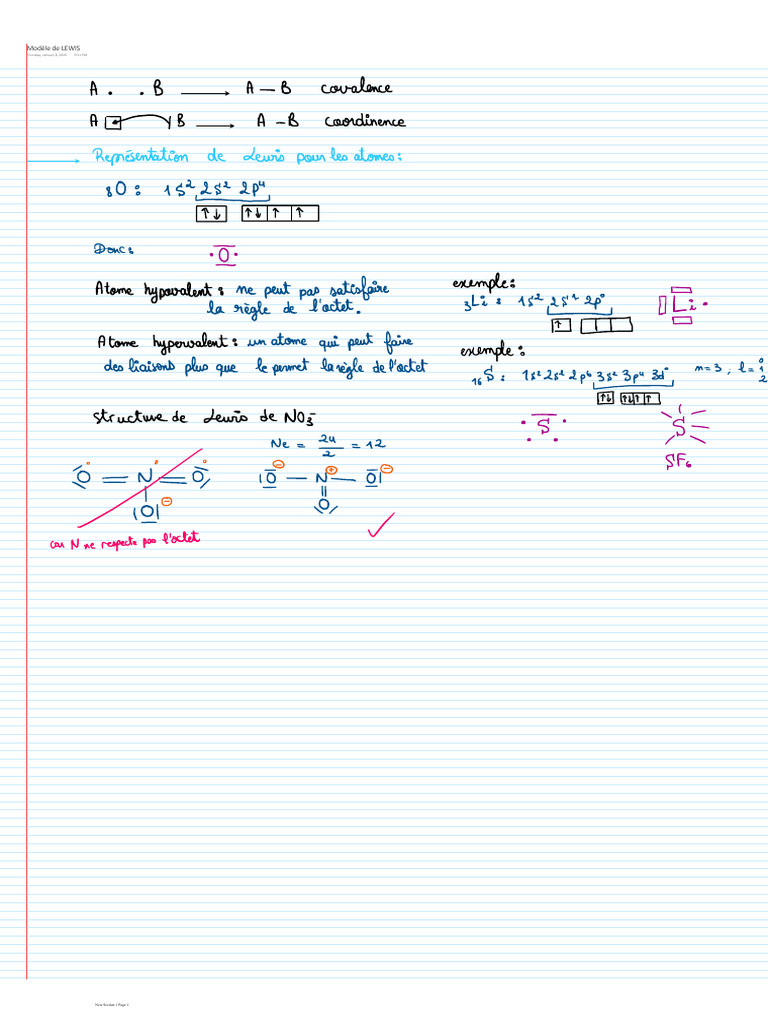 Modèle de LEWIS
A . . B → A — B covalence
A B → A – B coordinence
Représentation de Lewis pour les atomes :
₈O : 1s² 2s² 2p⁴
↑↓ ↑↓ ↑ ↑
Donc : • O •
Atome hypovalent : ne peut pas satisfaire
la règle de l'octet.
exemple :
₃Li : 1s² 2s¹ 2p⁰
↑
Li •
Atome hypervalent : un atome qui peut faire
des liaisons plus que le permet la règle de l'octet
exemple :
₁₆S : 1s² 2s² 2p⁶ 3s² 3p⁴ 3d⁰
n = 3 , l = 0 1 2
↑↓ ↑↓ ↑ ↑
• S •
S
SF₆
structure de Lewis de NO₃⁻
Ne = 24/2 = 12
O = N = O
|O| ⊖
⊖ |O — N ⊕ — O| ⊖
O
car N ne respecte pas l'octet
New Section 1 Page 1